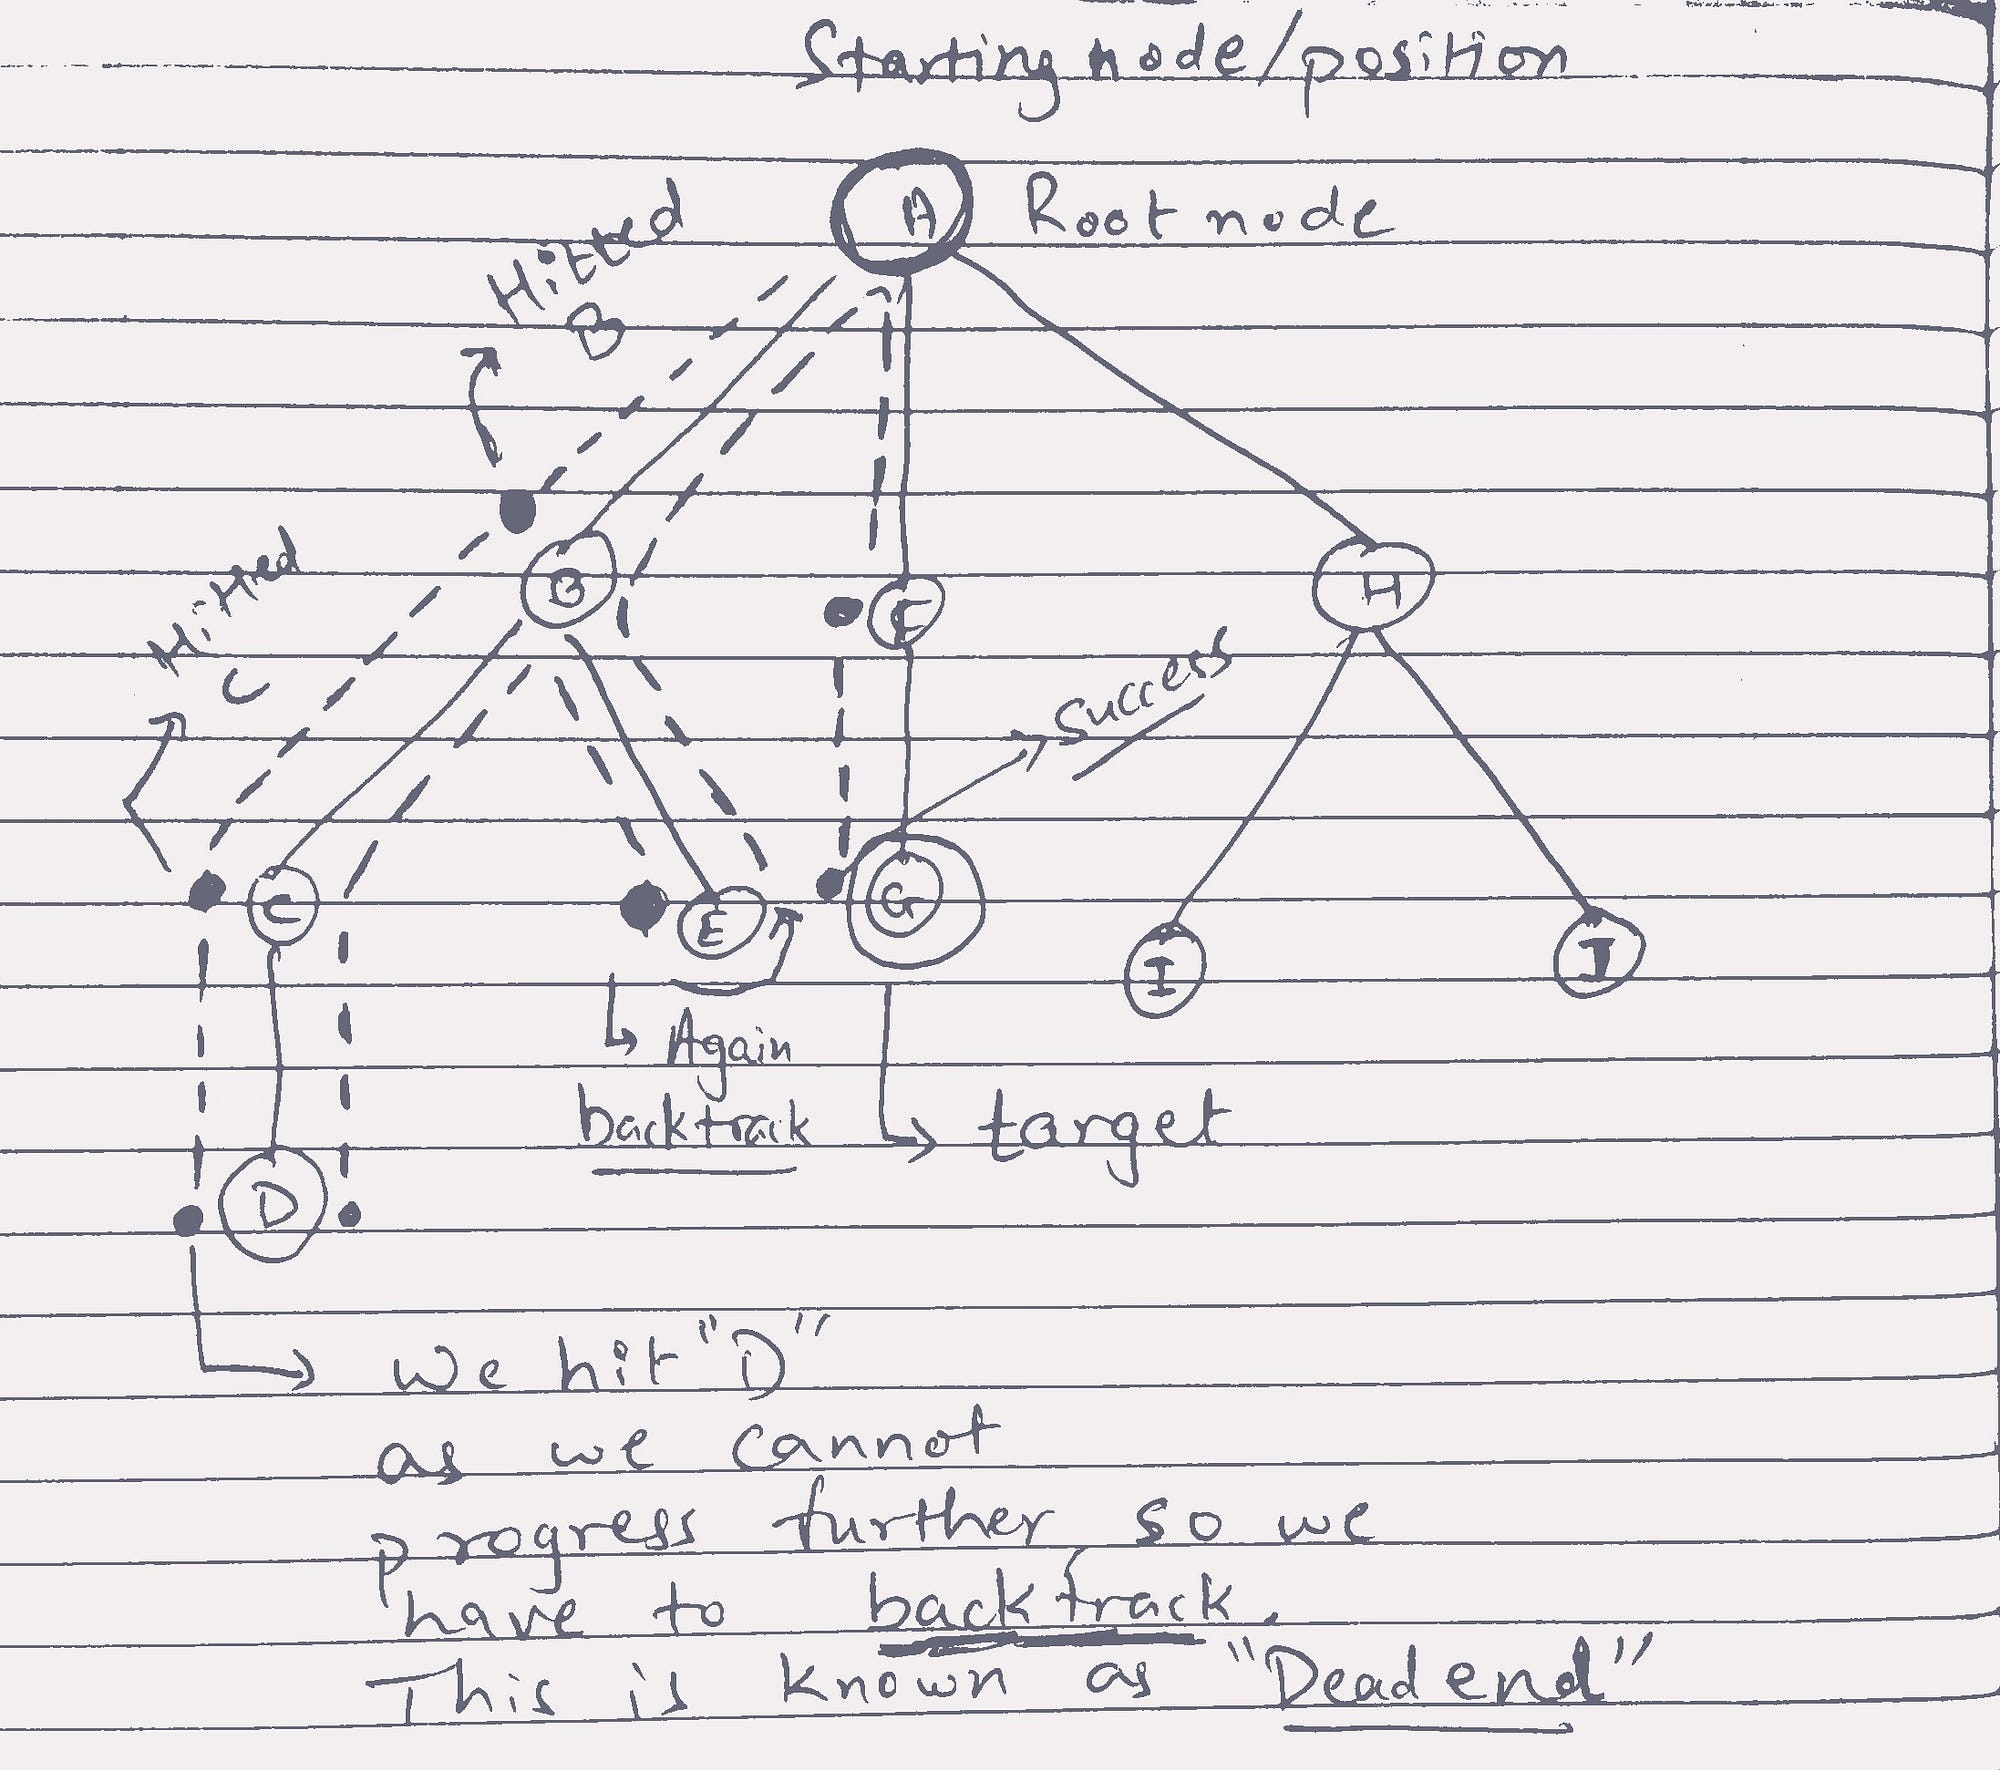 Starting node/position
A Root node
Hitted
B
Hitted
C
B
F
H
Success
C
E
G
I
J
Again
backtrack
target
D
We hit "D"
as we cannot
progress further so we
have to backtrack.
This is known as "Dead end"